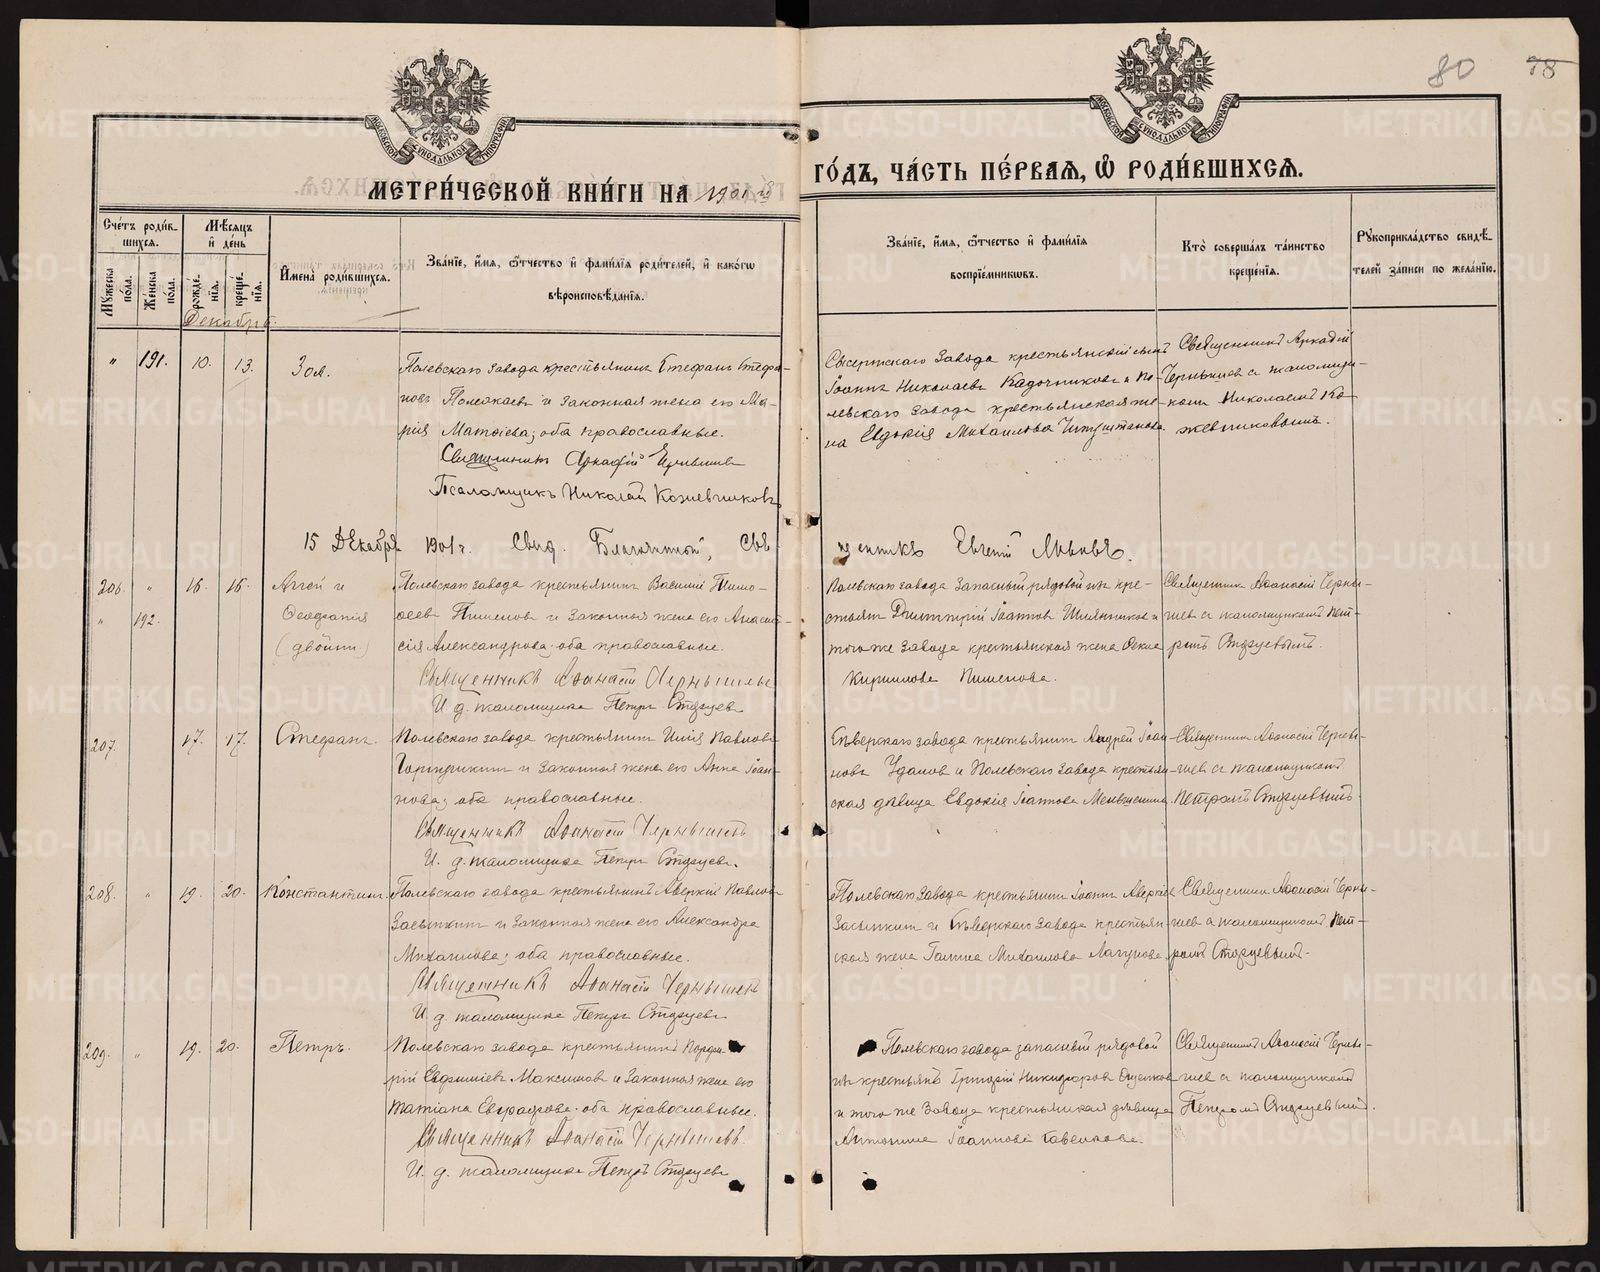 80 78
МОСКОВСКОЙ СѴНОДАЛЬНОЙ ТИПОГРАФІИ
МОСКОВСКОЙ СѴНОДАЛЬНОЙ ТИПОГРАФІИ
МЕТРИ́ЧЕСКОЙ КНИ́ГИ НА 1901й
ГО́ДЪ, ЧА́СТЬ ПЕ́РВАѦ, Ѡ҆ РОДИ́ВШИХСѦ.
Сче́тъ роди́в-
шихсѧ.
Мѣ́сѧцъ
и҆ де́нь
Мꙋ́жеска по́ла.
Же́нска по́ла.
рожде́нїѧ.
креще́нїѧ.
И҆мена̀ роди́вшихсѧ.
Зва́нїе, и҆́мѧ, ѻ҆́тчество и҆ фами́лїѧ роди́телей, и҆ како́гѡ
вѣроисповѣ́данїѧ.
Зва́нїе, и҆́мѧ, ѻ҆́тчество и҆ фами́лїѧ
воспрїе́мниковъ.
Кто̀ соверша́лъ та́инство
креще́нїѧ.
Рꙋкоприкла́дство свидѣ́-
телей за́писи по жела́нїю.
Декабрь
" 191. 10. 13. Зоя.
Полевскаго завода крестьянинъ Стефанъ Стефа-
новъ и законная жена его Ма-
рія Матѳіева; оба православные.
Священникъ Аркадій Чернышевъ
Псаломщикъ Николай Кожевниковъ
Сысертскаго завода крестьянскій сынъ
Іоаннъ Николаевъ Кадочниковъ и По-
левскаго завода крестьянская же-
на Евдокія Михаилова
Священникъ Аркадій
Чернышевъ съ псаломщи-
комъ Николаемъ Ко-
жевниковымъ.
15 Декабря 1901 г. Свид. Благочинный, Свя-
щенникъ Евгеній
206. " 16. 16. Аггей и
" 192. Ѳеофанія
(двойни)
Полевскаго завода крестьянинъ Василій Тимо-
ѳеевъ Пименовъ и законная жена его Анаста-
сія Александрова; оба православные.
Священникъ Аѳанасій Чернышевъ
И. д. псаломщика Петръ
Полевскаго завода запасный рядовой изъ кре-
стьянъ Димитрій Іоанновъ и
того же завода крестьянская жена
Кириллова Пименова.
Священникъ Аѳанасій Черны-
шевъ съ псаломщикомъ Пет-
ромъ
207. 17. 17. Стефанъ.
Полевскаго завода крестьянинъ Илія Павловъ
и законная жена его Анна Іоан-
нова; оба православные.
Священникъ Аѳанасій Чернышевъ
И. д. псаломщика Петръ
Сѣверскаго завода крестьянинъ Андрей Іоан-
новъ и Полевскаго завода крестьян-
ская дѣвица Евдокія Іоаннова Меньшенина.
Священникъ Аѳанасій Черны-
шевъ съ псаломщикомъ
Петромъ
208. " 19. 20. Константинъ.
Полевскаго завода крестьянинъ Аверкій Павловъ
Засыпкинъ и законная жена его Александра
Михаилова; оба православные.
Священникъ Аѳанасій Чернышевъ
И. д. псаломщика Петръ
Полевскаго завода крестьянинъ Іоаннъ Аверкіевъ
Засыпкинъ и Сѣверскаго завода крестьян-
ская жена Галина Михаилова Лагунова.
Священникъ Аѳанасій Черны-
шевъ съ псаломщикомъ Пет-
ромъ
209. " 19. 20. Петръ.
Полевскаго завода крестьянинъ Порфи-
рій Евфиміевъ Максимовъ и законная жена его
Татіана Евграфова; оба православные.
Священникъ Аѳанасій Чернышевъ.
И. д. псаломщика Петръ
Полевскаго завода запасный рядовой
изъ крестьянъ Григорій Никифоровъ
и того же завода крестьянская дѣвица
Антонина Іоаннова
Священникъ Аѳанасій Черны-
шевъ съ псаломщикомъ
Петромъ